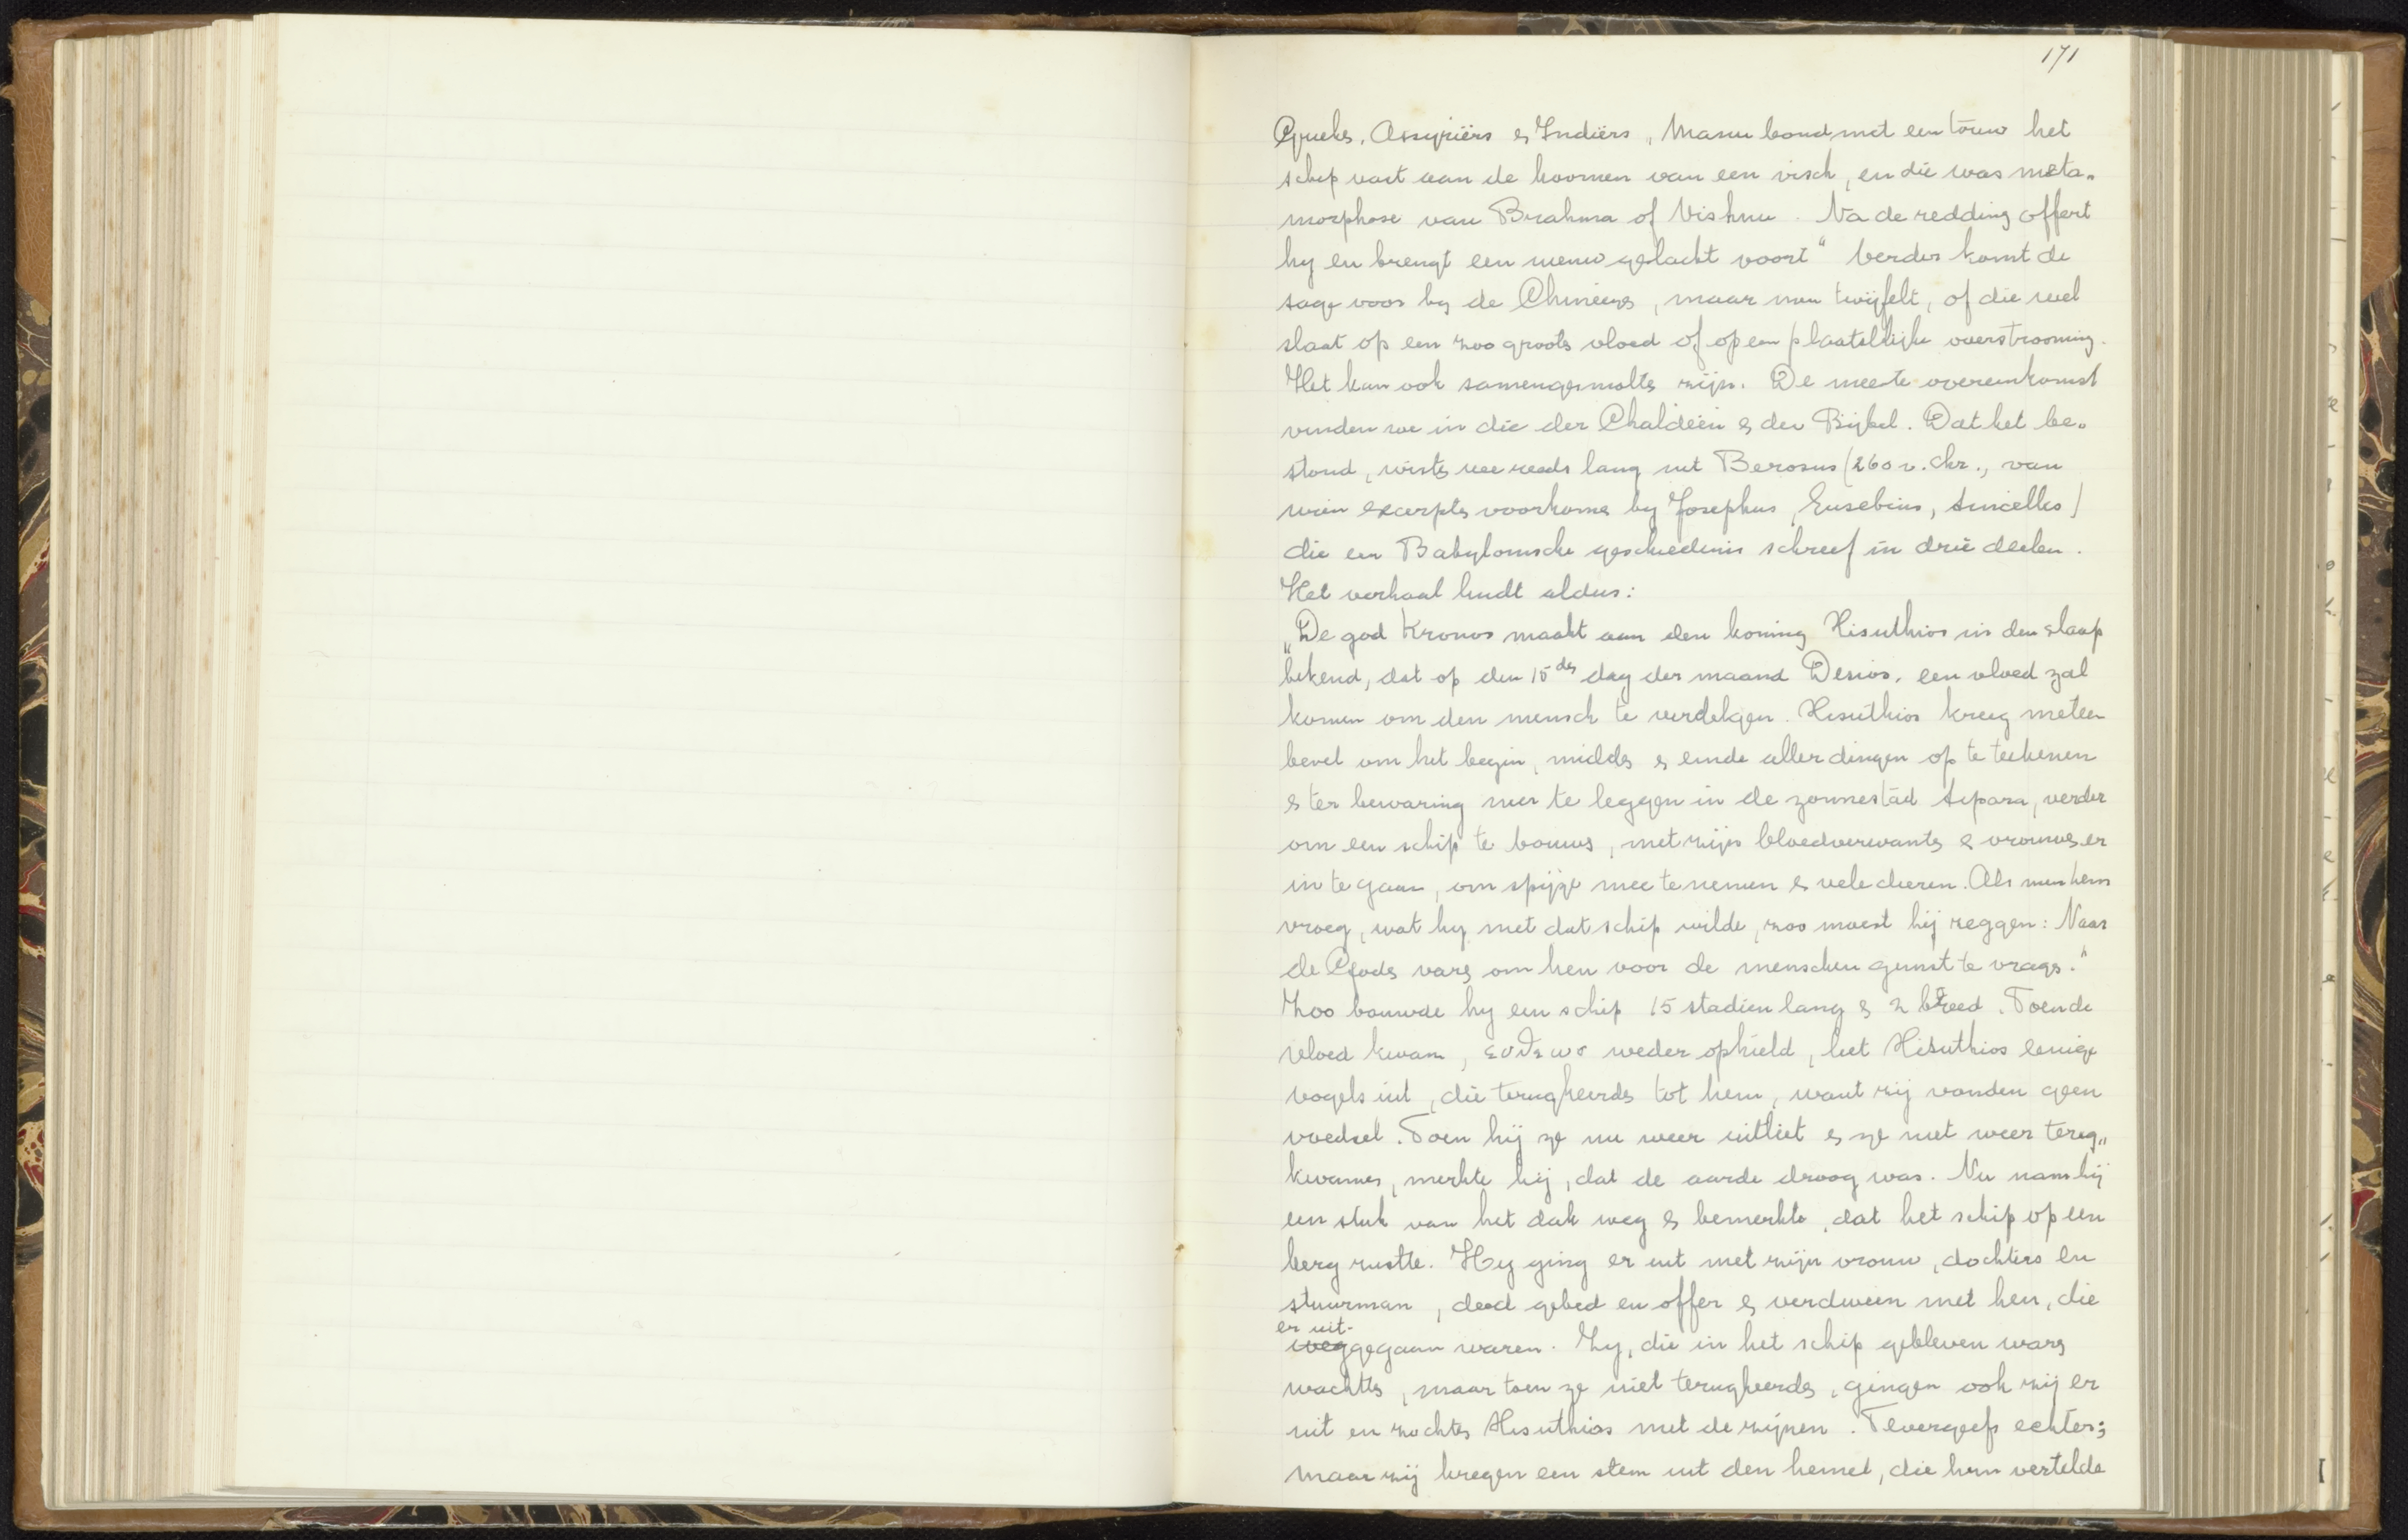 171
Grieks, Assyriërs & Indiërs, Manu bond met een touw het
schip vast aan de hoornen van een visch, en die was meta„
morphose van Brahma of Vishnu. Na de redding offert
hy en brengt een nieuw geslacht voort“ Verder komt de
sage voor by de Chineezs, maar men twijfelt, of die wel
slaat op een zoo groots vloed of op een plaatselijke overstrooming.
Het kan ook samengesmolts zijn. De meeste overeenkomst
vinden we in die der Chaldeën & der Bijbel. Dat het be„
stond, wists we reeds lang uit Berosus (260 v. Chr., van
wien excerpts voorkoms by Josephus, Eusebius, Sincellus)
die een Babylonische geschiedenis schreef in drie deelen.
Het verhaal luidt aldus:
„De god Kronos maakt aan den koning Xisuthios in den slaap
bekend, dat op den 15des dag der maand Desios, een vloed zal
komen om den mensch te verdelgen. Xisuthios kreeg meteen
bevel om het begin, midds & einde aller dingen op te teekenen
& ter bewaring neer te leggen in de zonnestad Sipara, verder
om een schip te bouws, met zijn bloedverwants & vrouws er
in te gaan, om spijze mee te nemen & vele dieren. Als men hem
vroeg, wat hy met dat schip wilde, zoo moest hij zeggen: Naar
de Gods vars om hen voor de menschen gunst te vrags.“
Zoo bouwde hy een schip 15 stadien lang & 2 breed. Toen de
vloed kwam, εὐθεως weder ophield, liet Xisuthios eenige
vogels uit, die terugkeerds tot hem, want zij vonden geen
voedsel. Toen hij ze nu weer uitliet & ze niet weer terug„
kwames, merkte hij, dat de aarde droog was. Nu nam hij
een stuk van het dak weg & bemerkte, dat het schip op een
berg rustte. Hy ging er uit met zijn vrouw, dochters en
stuurman, deed gebed en offer & verdween met hen, die
er uit-
weggegaan waren. Zy, die in het schip gebleven wars
wachtts, maar toen ze niet terugkeerds, gingen ook zij er
uit en zochts Xisuthios met de zijnen. Tevergeefs echter;
maar zij kregen een stem uit den hemel, die hun vertelde